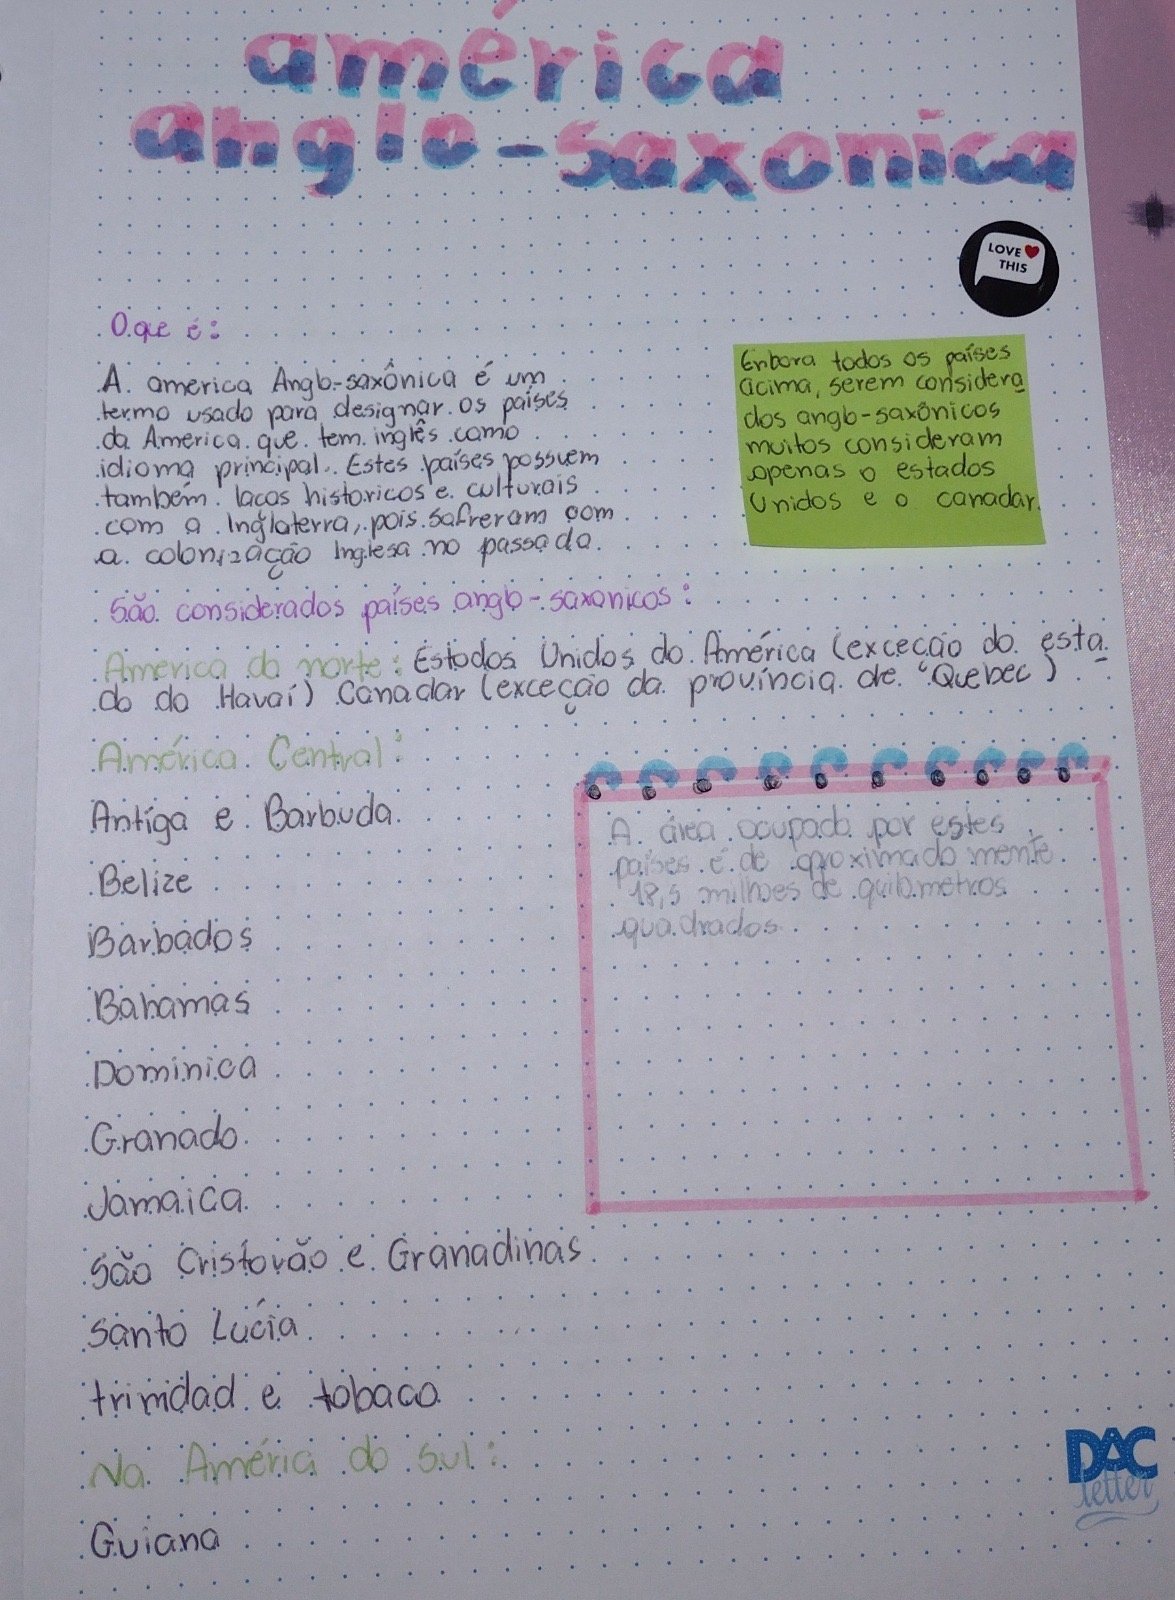 américa
anglo-saxonica
LOVE
THIS
O que é:
A america Anglo-saxônica é um
termo usado para designar os países
da America que tem inglês como
idioma principal. Estes países possuem
também lacos historicos e culturais
com a Inglaterra, pois sofreram com
a colonização Inglesa no passado.
Enbora todos os países
acima, serem considera
dos anglo-saxônicos
muitos consideram
apenas o estados
Unidos e o canadar.
São considerados países anglo-saxonicos:
America do norte: Estados Unidos da América (exceção do esta
do do Havaí) Canadar (exceção da província de "Quebec")
América Central:
Antíga e Barbuda
Belize
Barbados
Bahamas
Dominica
Granado
Jamaica
São Cristovão e Granadinas
Santo Lúcia
trinidad e tobaco
A área ocupada por estes
países é de aproximadomente
18,5 milhoes de quilometros
quadrados
Na América do Sul:
Guiana
DAC
letter